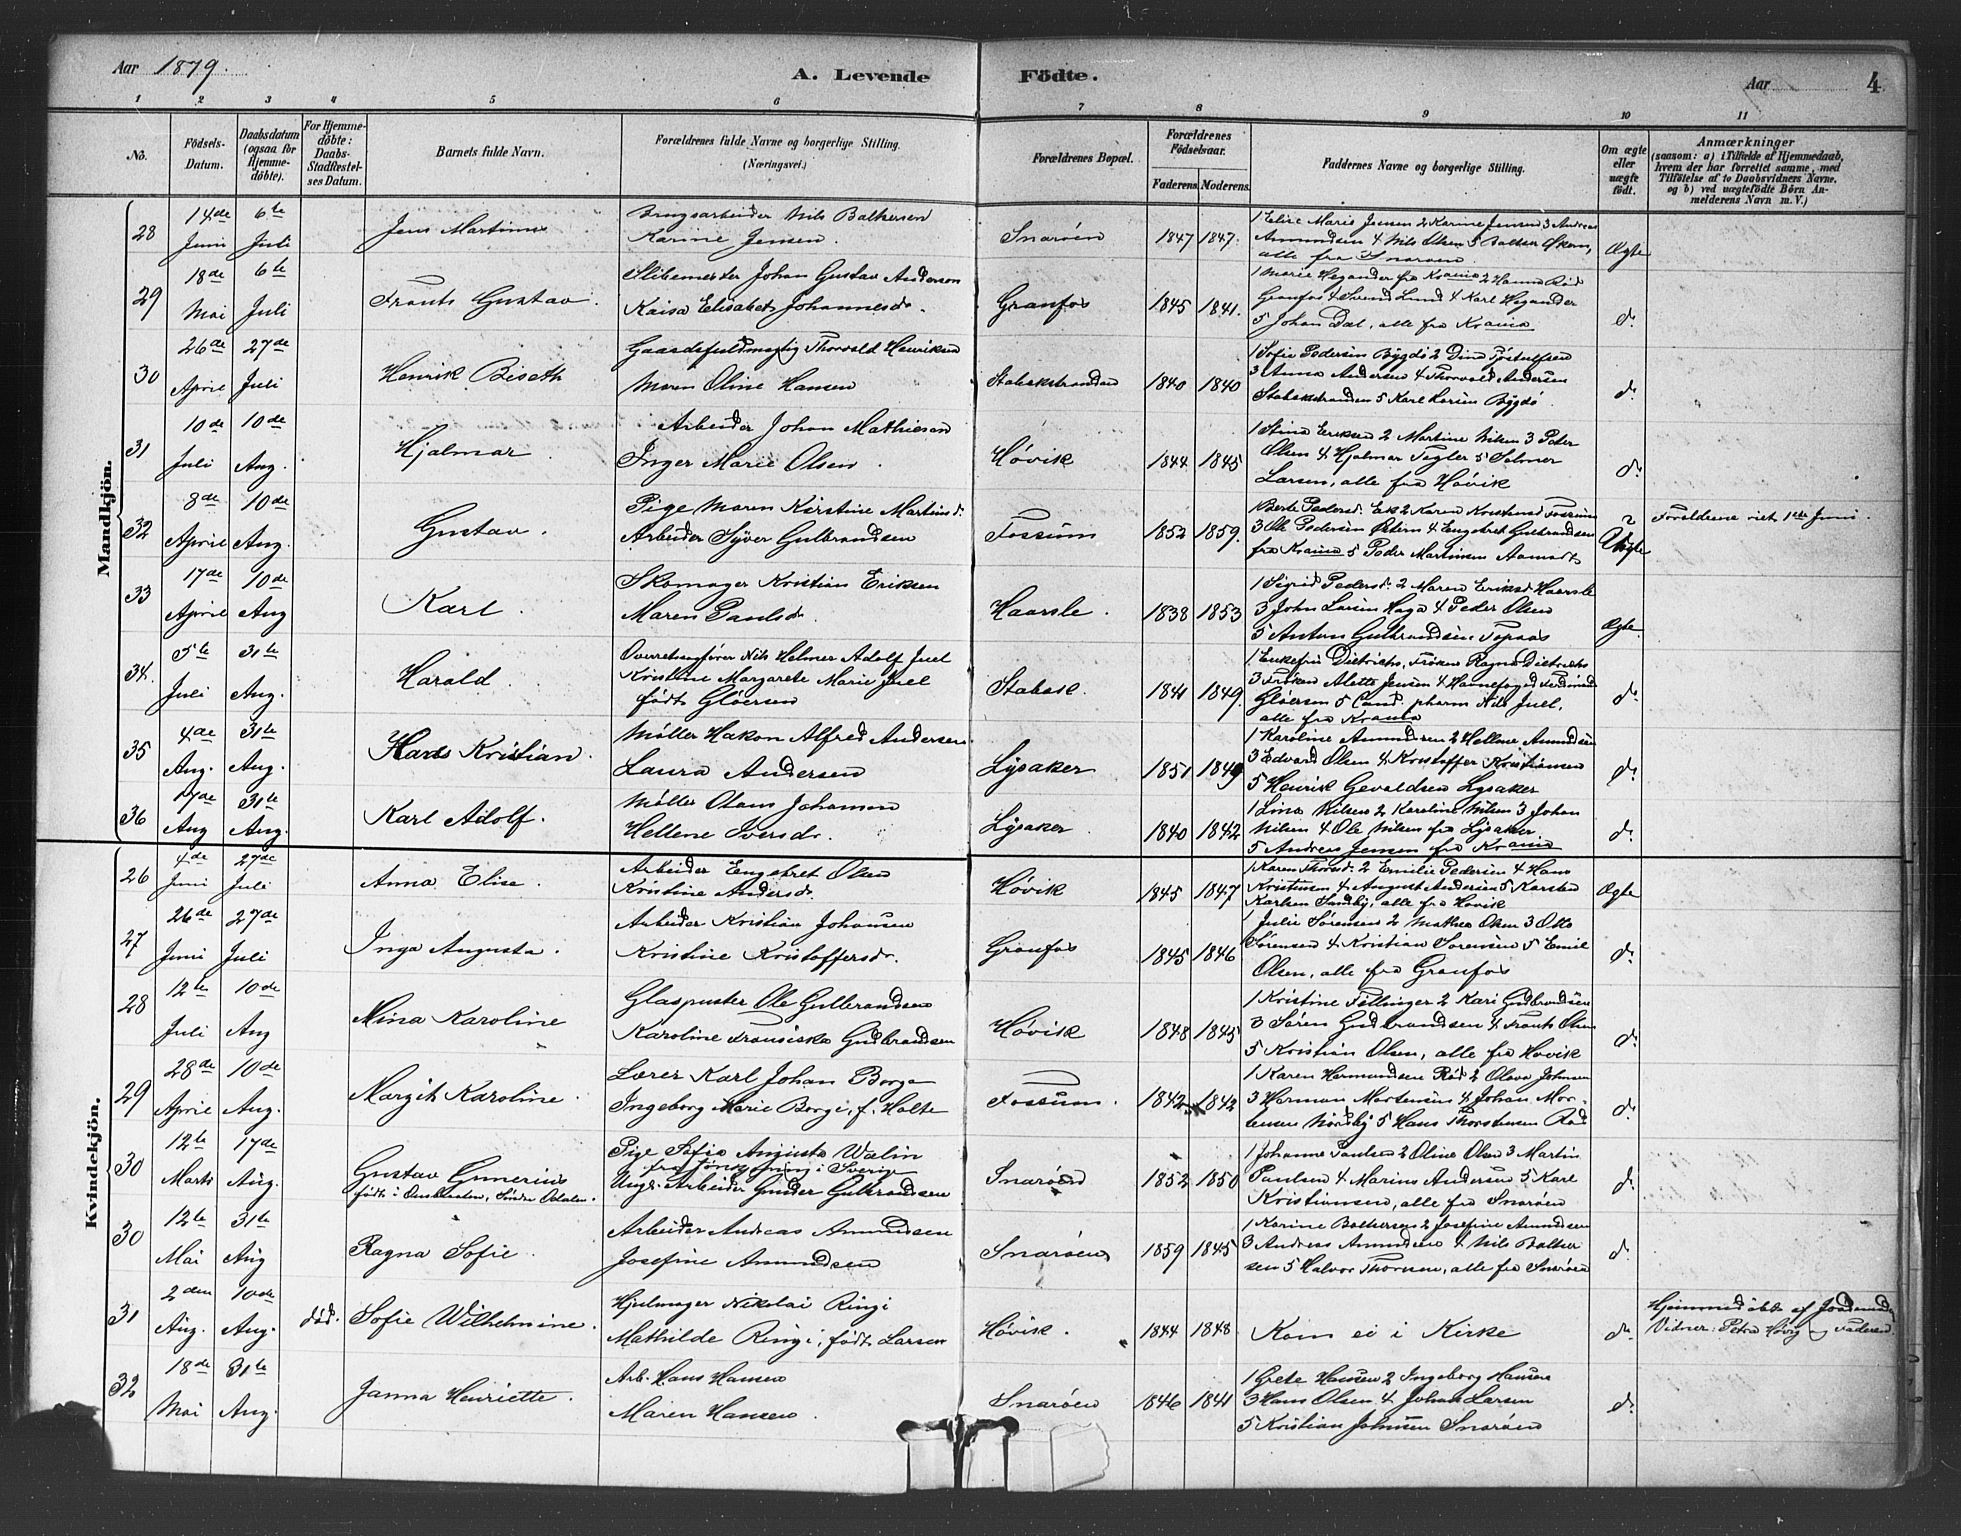 Aar 1879.
A. Levende Födte.
Aar 4
1 2 3 4 5 6 7 8 9 10 11
No.
Födsels-Datum.
Daabsdatum (ogsaa for Hjemmedöbte).
For Hjemmedöbte: Daabs-Stadfæstelses Datum.
Barnets fulde Navn.
Forældrenes fulde Navne og borgerlige Stilling. (Næringsvei.)
Forældrenes Bopæl.
Forældrenes Födselsaar.
Faderens. Moderens.
Faddernes Navne og borgerlige Stilling.
Om ægte eller uægte födt.
Anmærkninger
(saasom: a) i Tilfælde af Hjemmedaab,
hvem der har forrettet samme, med
Tilföielse af to Daabsvidners Navne.
og b) ved uægtefödte Börn Anmelderens Navn m.V.)
Mandkjön.
28 14de Juni 6te Juli Jens Martinus
Brugsarbeider Nils Baltersen
Karine Jensen.
Snarøen 1847 1847.
1 Elise Marie Jensen 2 Karine Jensen 3 Andreas
Amundsen 4 Nils Olsen 5
alle fra Snarøen
Ægte
29 18de Mai 6te Juli Frants Gustav.
Slibemester Johan Gustav Anderson
Kaisa Elisabet Johannesdr.
Granfos 1845 1841.
1 Marie Hegander fra Krania 2 Hanna
Granfos 4 Svend Lund 4 Karl Hegander
5 Johan Dal, alle fra Krania
do.
30 26de April 27de Juli Henrik Biseth
Gaardsfuldmægtig Thorvald Henriksen
Maren Oline Hansen
Stabækstranden 1840 1840
1 Sofie Pedersen Bygdö 2 Dina
3 Anna Andersen 4 Thorvald Andersen
Stabækstranden 5 Karl Larsen Bygdö.
do.
31 10de Juli 10de Aug. Hjalmar.
Arbeider Johan Mathiesen
Inger Marie Olsen.
Høvik 1844 1845
1 Stina Eriksen 2 Martine Nilsen 3 Peter
Olsen 4 Hjalmar Tegler 5
Larsen, alle fra Høvik
do.
32 8de April 10de Aug. Gustav.
Pige Maren Kirstine Martinsd.
Arbeider Syver Gulbrandsen
Fossum 1852 1859.
1 Berte Pedersd. Eek 2 Karen Kristensd Fossum
3 Ole Pedersen 4 Engebret Gulbrandsen
fra Krania 5 Peder Martinsen
Uægte
Foreldrene viet 1ste Juni.
33 17de April 10de Aug Karl.
Skomager Kristian Eriksen
Maren Paulsdr.
Haarsle. 1838 1853
1 Sigrid Pedersd. 2 Maren Eriksd Haarsle
3 John Larsen Haga 4 Peder Olsen
5 Anton Gulbrandsen
Ægte.
34. 5te Juli 31te Aug. Harald.
Overretssagfører Nils Helmer Adolf Juel
Kristine Margarete Marie Juel
født Gløersen
Stabæk. 1841 1849.
1 Enkefru Dietrichs, Frøken Ragna Dietrichs
3 Frøken Alette Jensen 4 Havnefoged Ferdinand
Gløersen 5 Cand. pharm Nils Juel,
alle fra Krania
do.
35 4de Aug. 31te Aug. Hans Kristian.
Møller Hakon Alfred Andersen
Laura Andersen
Lysaker 1851 1849
1 Karoline Amundsen 2 Hellene Amundsen
3 Edvard Olsen 4 Kristoffer Kristiansen
5 Henrik Gevaldsen Lysaker
do.
36 17de Aug 31te Aug. Karl Adolf.
Møller Olaus Johansen
Hellene Iversdr.
Lysaker. 1840 1842
1 Lina Nilsen 2 Karoline Nilsen 3 Johan
Nilsen 4 Ole Nilsen fra Lysaker
5 Andreas Jensen fra Krania
do.
Kvindekjön.
26 4de Juni 27de Juli Anna Elise.
Arbeider Engebret Olsen
Kristine Andersdr.
Høvik 1845 1847
1 Karen Thorsd. 2 Emilie Pedersen 4 Hans
Kristiansen 4 August Andersen 5 Karsten
Karlsen Sandby, alle fra Høvik
Ægte
27 26de Juni 27de Juli Inga Augusta.
Arbeider Kristian Johansen
Kristine Kristoffersdr.
Granfos 1845 1846
1 Julie Sørensen 2 Mathea Olsen 3 Otto
Sørensen 4 Kristian Sørensen 5 Emil
Olsen, alle fra Granfos
do.
28 12te Juli 10de Aug Nina Karoline
Glaspuster Ole Gulbrandsen
Karoline Fransiska Gulbrandsen
Høvik 1848 1845
1 Kristine Fellinger 2 Kari Gulbrandsen
3 Søren Gulbrandsen 4 Frants Olsen
5 Kristian Olsen, alle fra Høvik
do.
29 28de April 10de Aug. Margit Karoline.
Lærer Karl Johan Borge
Ingeborg Marie Borgi, f. Holte
Fossum. 1842 1842
1 Karen Hermundsen Rød 2 Olava Johnsen
3 Herman Mortensen 4 Johan Mortensen
Nordby 5 Hans Thorstensen Rød
do.
30 12te Marts 17de Aug. Gustav Gunerius
født i Sønder Odalen.
Pige Sofie Augusta Walin
fra Jønkøping i Sverige
Ungk. Arbeider Gunder Gulbrandsen
Snarøen 1852 1850
1 Johanne Paulsen 2 Oline Olsen 3 Martin
Paulsen 4 Marius Andersen 5 Karl
Kristiansen, alle fra Snarøen
do.
30 12te Mai 31te Aug Ragna Sofie.
Arbeider Andreas Amundsen
Josefine Amundsen
Snarøen 1859 1845
1 Karine Baltersen 2 Josefine Amundsen
3 Andreas Amundsen 4 Nils Baltersen
5 Halvor Thoresen, alle fra Snarøen
do.
31 2den Aug. 10de Aug. død. Sofie Wilhelmine.
Hjulmager Nikolai Ringi
Mathilde Ringi, født Larsen
Høvik. 1844 1848
Kom ei i Kirke
do.
Hjemmedøbt af Jordemoder
Vidner: Petra Høvig og Faderen.
32 18de Mai 31te Aug. Janna Henriette.
Arb. Hans Hansen
Maren Hansen.
Snarøen 1846 1841
1 Grete Hansen 2 Ingeborg Hansen
3 Hans Olsen 4 Johan Larsen
5 Kristian Johnsen Snarøen
do.